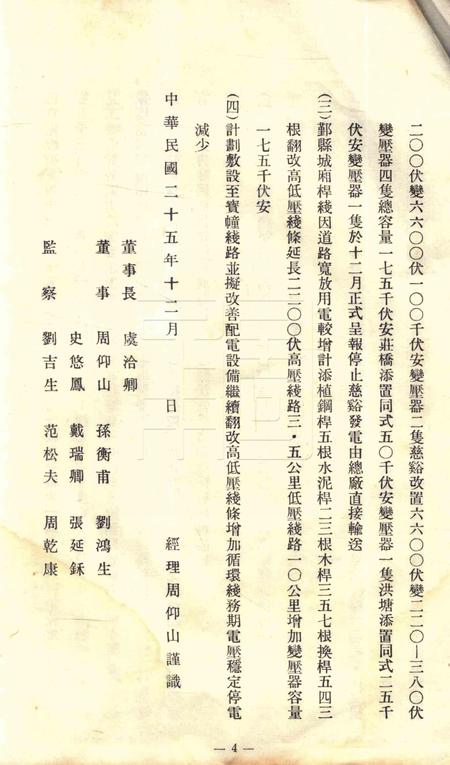 二〇〇伏變六六〇〇伏一〇〇千伏安變壓器二隻慈谿改置六六〇〇伏變二二〇—三八〇伏
變壓器四隻總容量一七五千伏安莊橋添置同式五〇千伏安變壓器一隻洪塘添置同式二五千
伏安變壓器一隻於十二月正式呈報停止慈谿發電由總廠直接輸送
(三)鄞縣城廂桿綫因道路寬放用電較增計添植鋼桿五根水泥桿二三根木桿三五七根換桿五四三
根翻改高低壓綫條延長二二〇〇伏高壓綫路三・五公里低壓綫路一〇公里增加變壓器容量
一七五千伏安
(四)計劃敷設至寶幢綫路並擬改善配電設備繼續翻改高低壓綫條增加循環綫務期電壓穩定停電
減少
中華民國二十五年十二月 日 經理周仰山謹識
董事長 虞洽卿
董事 周仰山 孫衡甫 劉鴻生
史悠鳳 戴瑞卿 張延鉌
監察 劉吉生 范松夫 周乾康
— 4 —